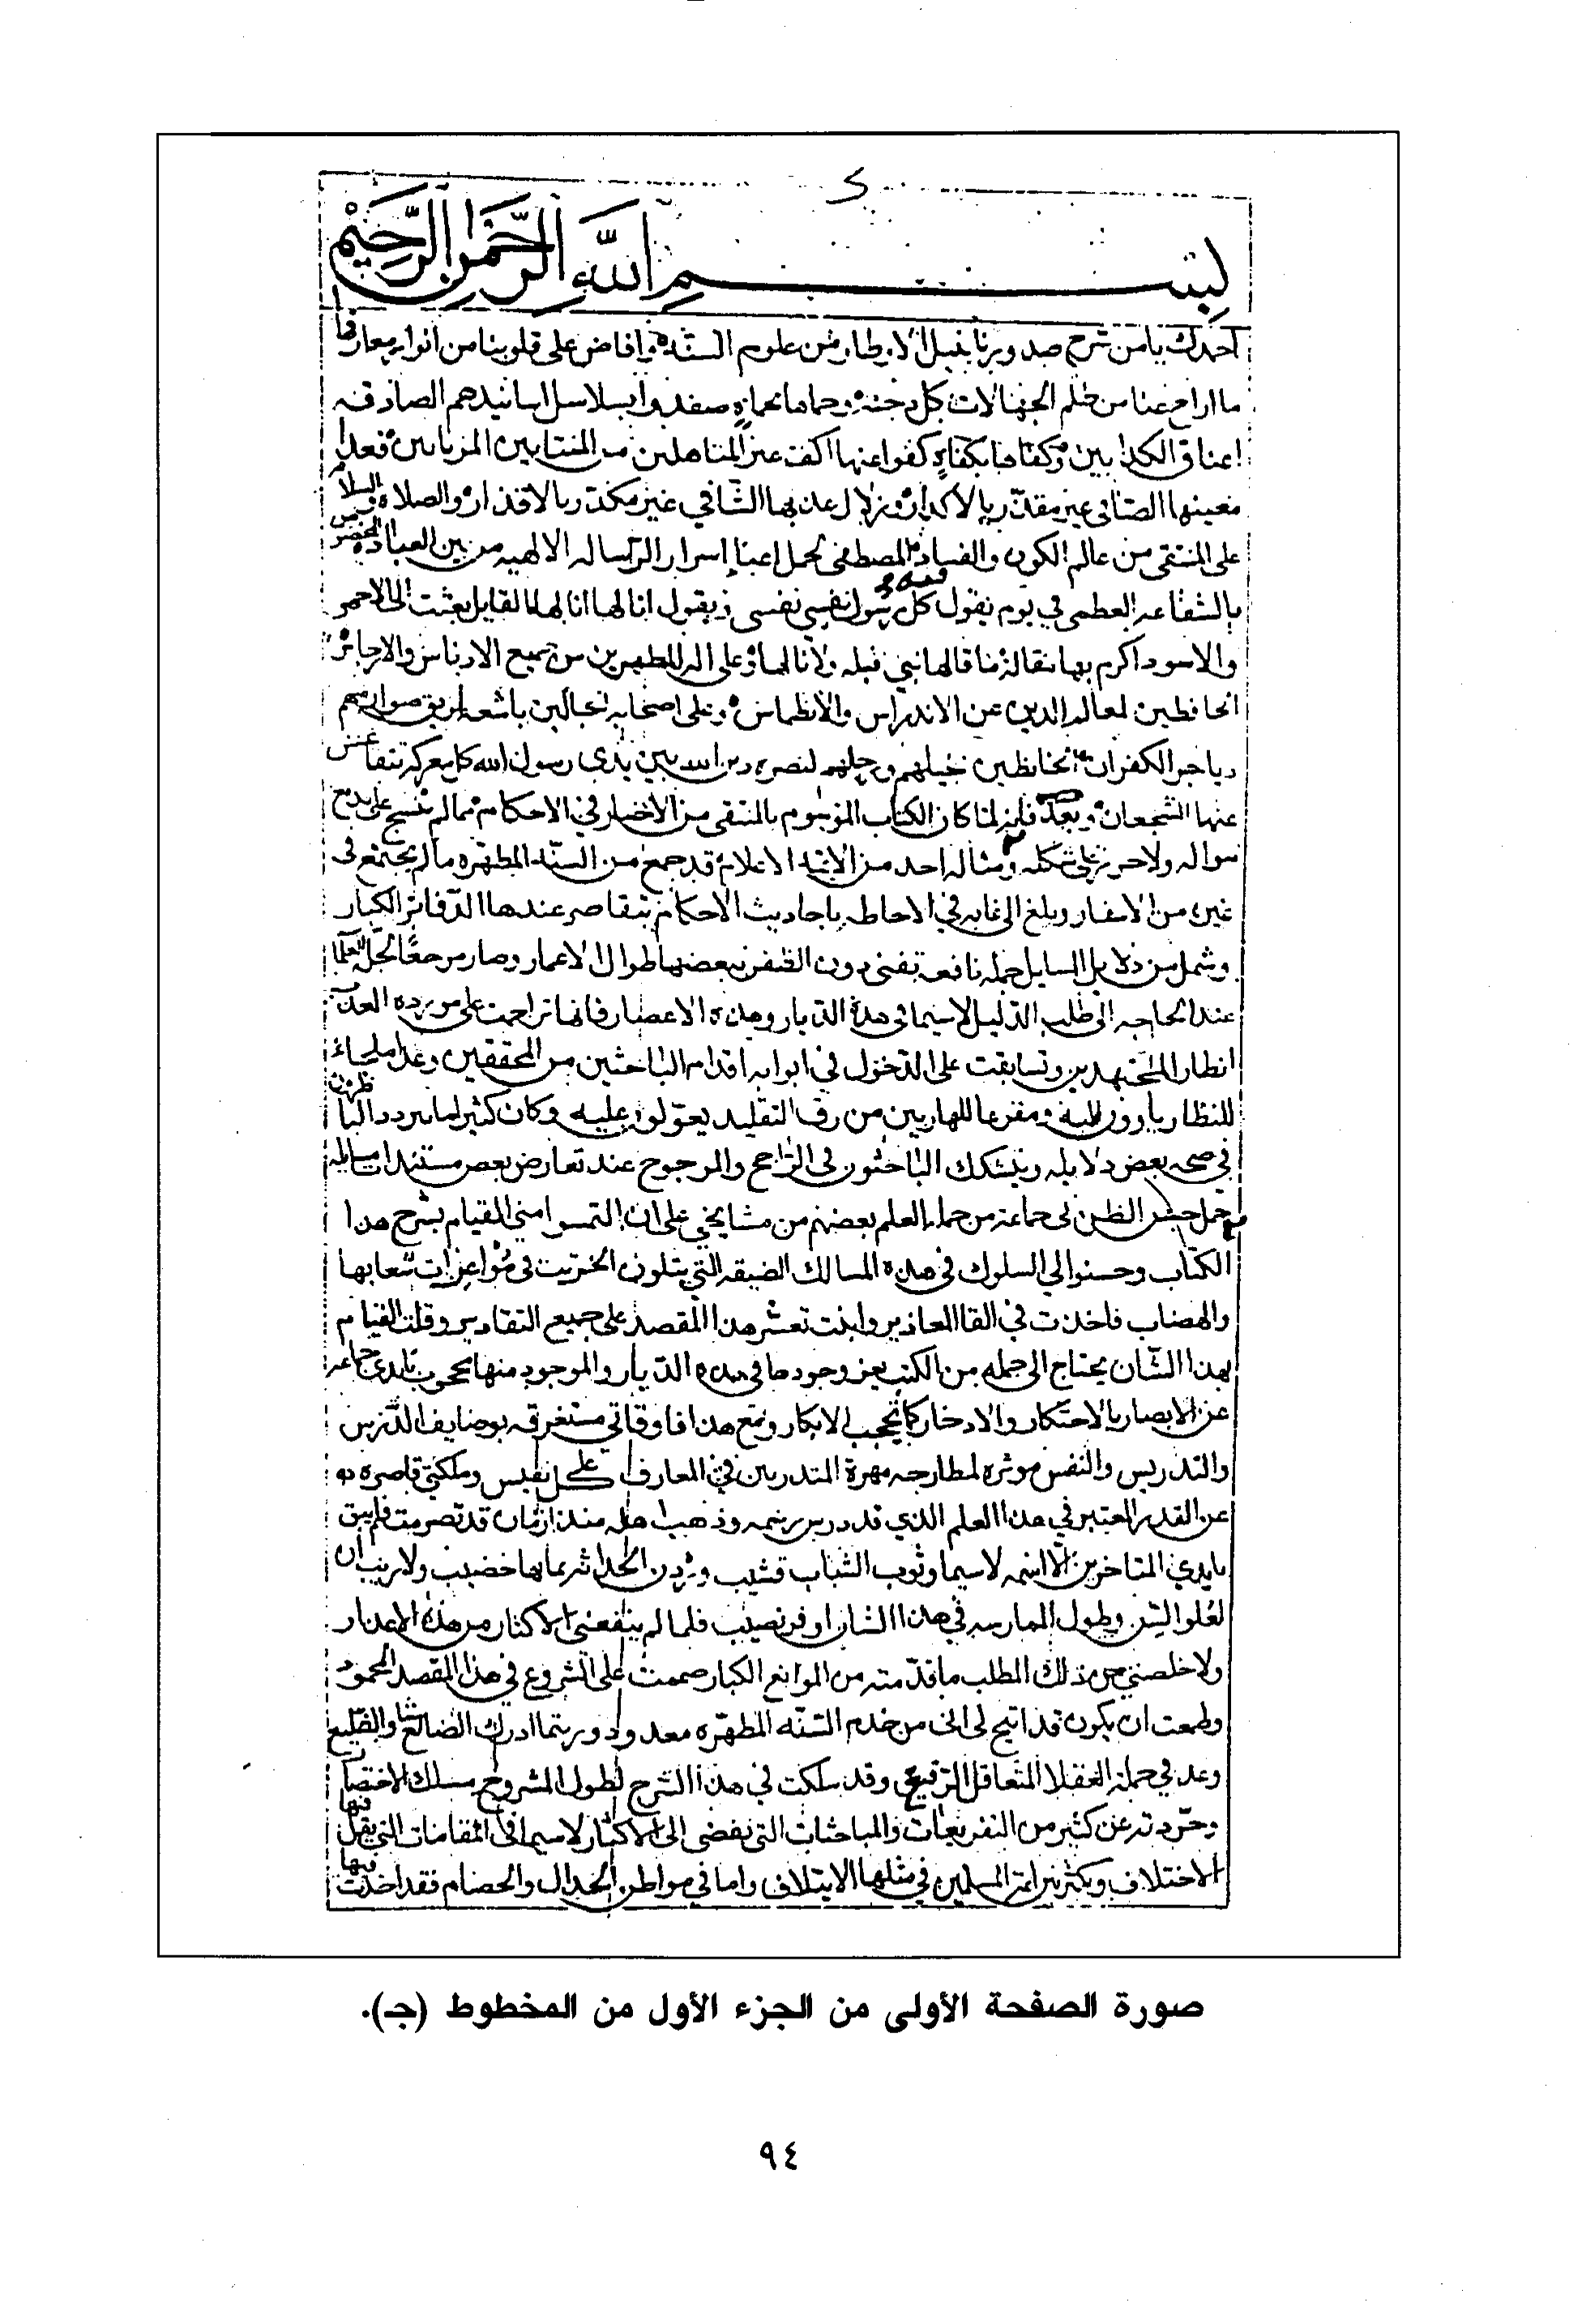 ٢
بسم الله الرحمن الرحيم
احمدك يا من شرح صدورنا بنيل الاوطار من علوم السنة وافاض على قلوبنا من انوار معارفها
ما ازاح عنا من ظلم الجهالات كل دجنة وحماها بحماة صفدوا بسلاسل اسانيدهم الصادقه
اعناق الكذابين وكفاها بكفاة كفوا عنها اكف غير المتاهلين من المنتابين المرتابين فغدا
معينها الصافي غير مقذر بالاكدار وزلال عذبها الشافي غير مكدر بالاقذار والصلاة والسلام
على المنتقى من عالم الكون والفساد المصطفى لحمل اعباء اسرار الرسالة الالهيه من بين العباد المخصوص
بالشفاعه العظمى في يوم يقول فيه كل رسول نفسي نفسي ويقول انا لها انا لها القايل بعثت الى الاحمر
والاسود اكرم بها مقالة ما قالها نبي قبله ولا نالها وعلى اله المطهرين من جميع الادناس والارجاس
الحافظين لمعالم الدين عن الاندراس والانطماس وعلى اصحابه الجالين باشعة بريق صوارمهم
دياجر الكفران الخايظين بخيلهم ورجلهم لنصرة دين الله بين يدي رسول الله كل معركة تتقاعس
عنها الشجعان وبعد فانه لما كان الكتاب الموسوم بالمنتقى من الاخبار في الاحكام مما لم ينسج على بديع
منواله ولا حرر على شكله ومثاله احد من الائمة الاعلام قد جمع من السنة المطهره ما لم يجتمع في
غيره من الاسفار وبلغ الى غايه في الاحاطه باحاديث الاحكام تتقاصر عندها الدفاتر الكبار
وشمل من دلايل المسايل جمله نافعه تفنى دون الظفر ببعضها طوال الاعمار وصار مرجعا لجل العلما
عند الحاجه الى طلب الدليل لا سيما في هذه الديار وهذه الاعصار فانها تزاحمت على مورده العذب
انظار المجتهدين وتسابقت على الدخول في ابوابه اقدام الباحثين من المحققين وغدا ملجاء
للنظار ياوون اليه ومفزعا للهاربين من رق التقليد يعولون عليه وكان كثيرا ما يتردد الناظرون
في صحه بعض دلايله ويتشكك الباحثون في الراجح والمرجوح عند تعارض بعض مستندات مسايله
حمل حسن الظن لي جماعة من حملة العلم بعضهم من مشايخي على ان التمسوا مني القيام بشرح هذا
الكتاب وحسنوا لي السلوك في هذه المسالك الضيقه التي يتلون الخريت في موعرات شعابها
والهضاب فاخذت في القا المعاذير وابنت تعسر هذا المقصد على جميع التقادير وقلت القيام
بهذا الشان يحتاج الى جمله من الكتب يعز وجودها في هذه الديار والموجود منها محجوب بايدي جماعه
عن الابصار بالاحتكار والادخار كما تحجب الابكار ومع هذا فاوقاتي مستغرقه بوضايف الدرس
والتدريس والنفس موثره لمطارحه مهرة المتدربين في المعارف على كل نفيس وملكتي قاصره
عن القدر المعتبر في هذا العلم الذي قد درس رسمه وذهب اهله منذ ازمان قد تصرمت فلم يبق
بايدي المتاخرين الا اسمه لا سيما وثوب الشباب قشيب وردن الحداثه بمايها خضيب ولا ريب ان
لعلو السن وطول الممارسه في هذا الشان اوفر نصيب فلما لم ينفعني الاكثار من هذه الاعذار
ولا خلصني من ذلك المطلب ما قدمته من الموانع الكبار صممت على الشروع في هذا المقصد المحمود
وطمعت ان يكون قد اتيح لي اني من خدم السنه المطهره معدود وربما ادرك الضالع شاو الضليع
وعد في جملة العقلا المتعاقل الرقيع وقد سلكت في هذا الشرح لطول المشروح مسلك الاختصار
وجردته عن كثير من التفريعات والمباحثات التي تفضي الى الاكثار لا سيما في المقامات التي يقل فيها
الاختلاف ويكثر بين ايمة المسلمين في مثلها الايتلاف واما في مواطن الجدال والخصام فقد اخذت فيها
صورة الصفحة الأولى من الجزء الأول من المخطوط (جـ).
٩٤